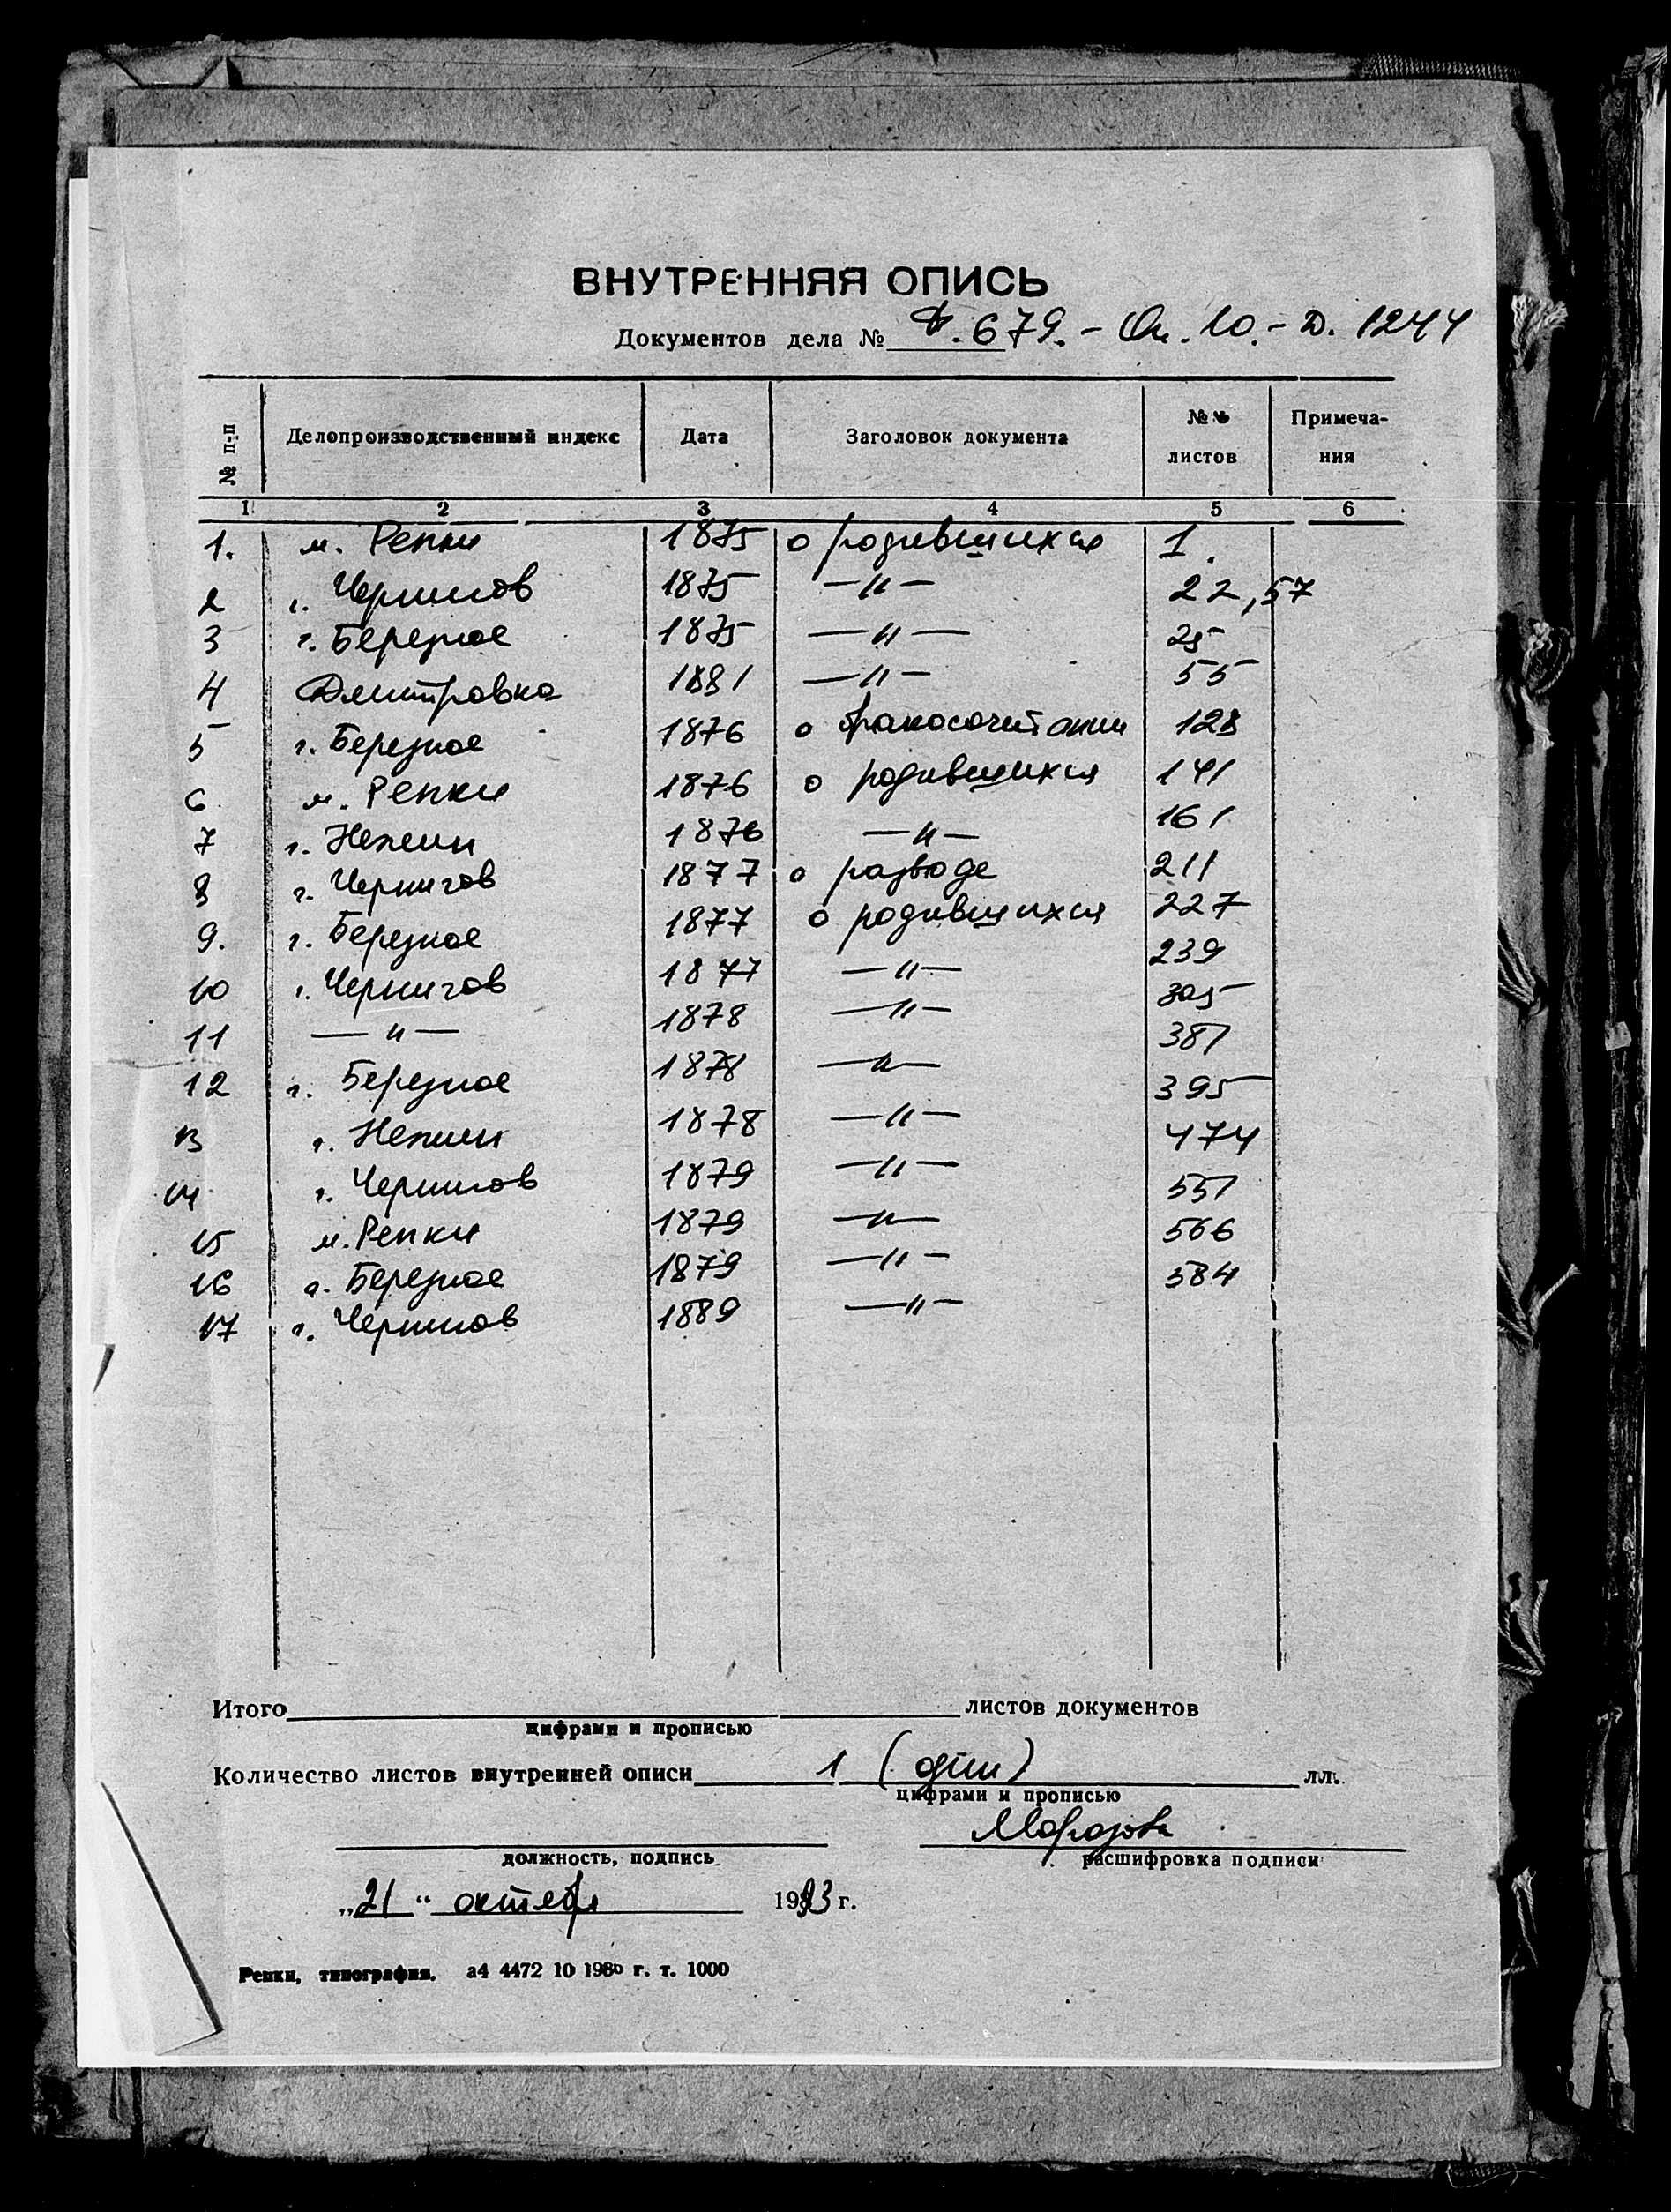 ВНУТРЕННЯЯ ОПИСЬ
Документов дела № Ф. 679. - Оп. 10. - Д. 1244
№ п-п Делопроизводственный индекс Дата Заголовок документа №№ листов Примеча- ния
1 2 3 4 5 6
1. м. Репки 1875 о родившихся 1.
2 г. Чернигов 1875 —"— 22, 57
3 г. Березное 1875 —"— 25
4 Дмитровка 1881 —"— 55
5 г. Березное 1876 о бракосочетании 128
6 м. Репки 1876 о родившихся 141
7 г. Нежин 1876 —"— 161
8 г. Чернигов 1877 о разводе 211
9. г. Березное 1877 о родившихся 227
10 г. Чернигов 1877 —"— 239
11 —"— 1878 —"— 305
12 г. Березное 1878 —"— 387
13 г. Нежин 1878 —"— 395
14 г. Чернигов 1879 —"— 474
15 м. Репки 1879 —"— 557
16 г. Березное 1879 —"— 566
17 г. Чернигов 1889 —"— 584
Итого листов документов
цифрами и прописью
Количество листов внутренней описи 1 (один) лл.
цифрами и прописью
Морозова
должность, подпись расшифровка подписи
„21“ октября 1993 г.
Репки, типография. а4 4472 10 1980 г. т. 1000